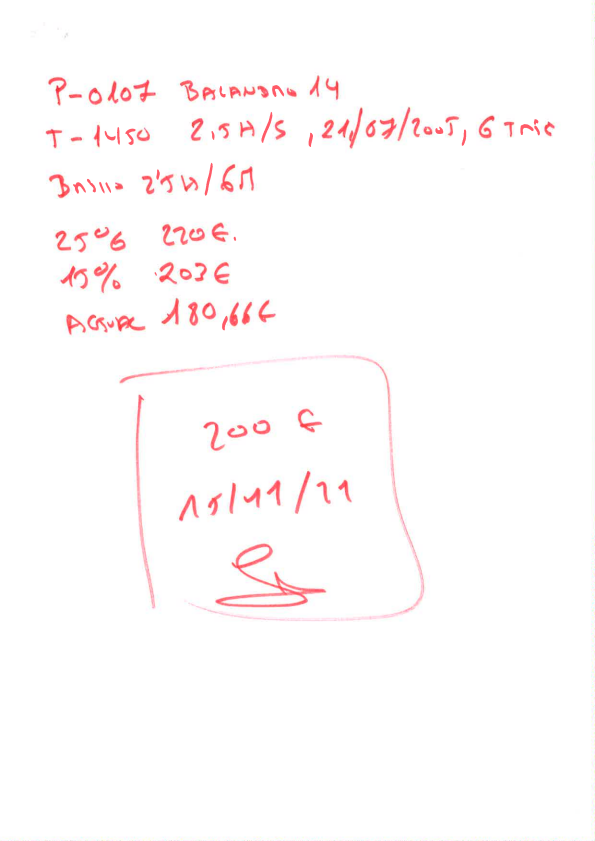 P-0107 BALANDRO 14
T-1450 2,5H/S, 21/07/2005, 6 TRIE
2'5H/6M
25% 220€.
15% 203€
ACTUAL 180,66€
200 €
15/11/21